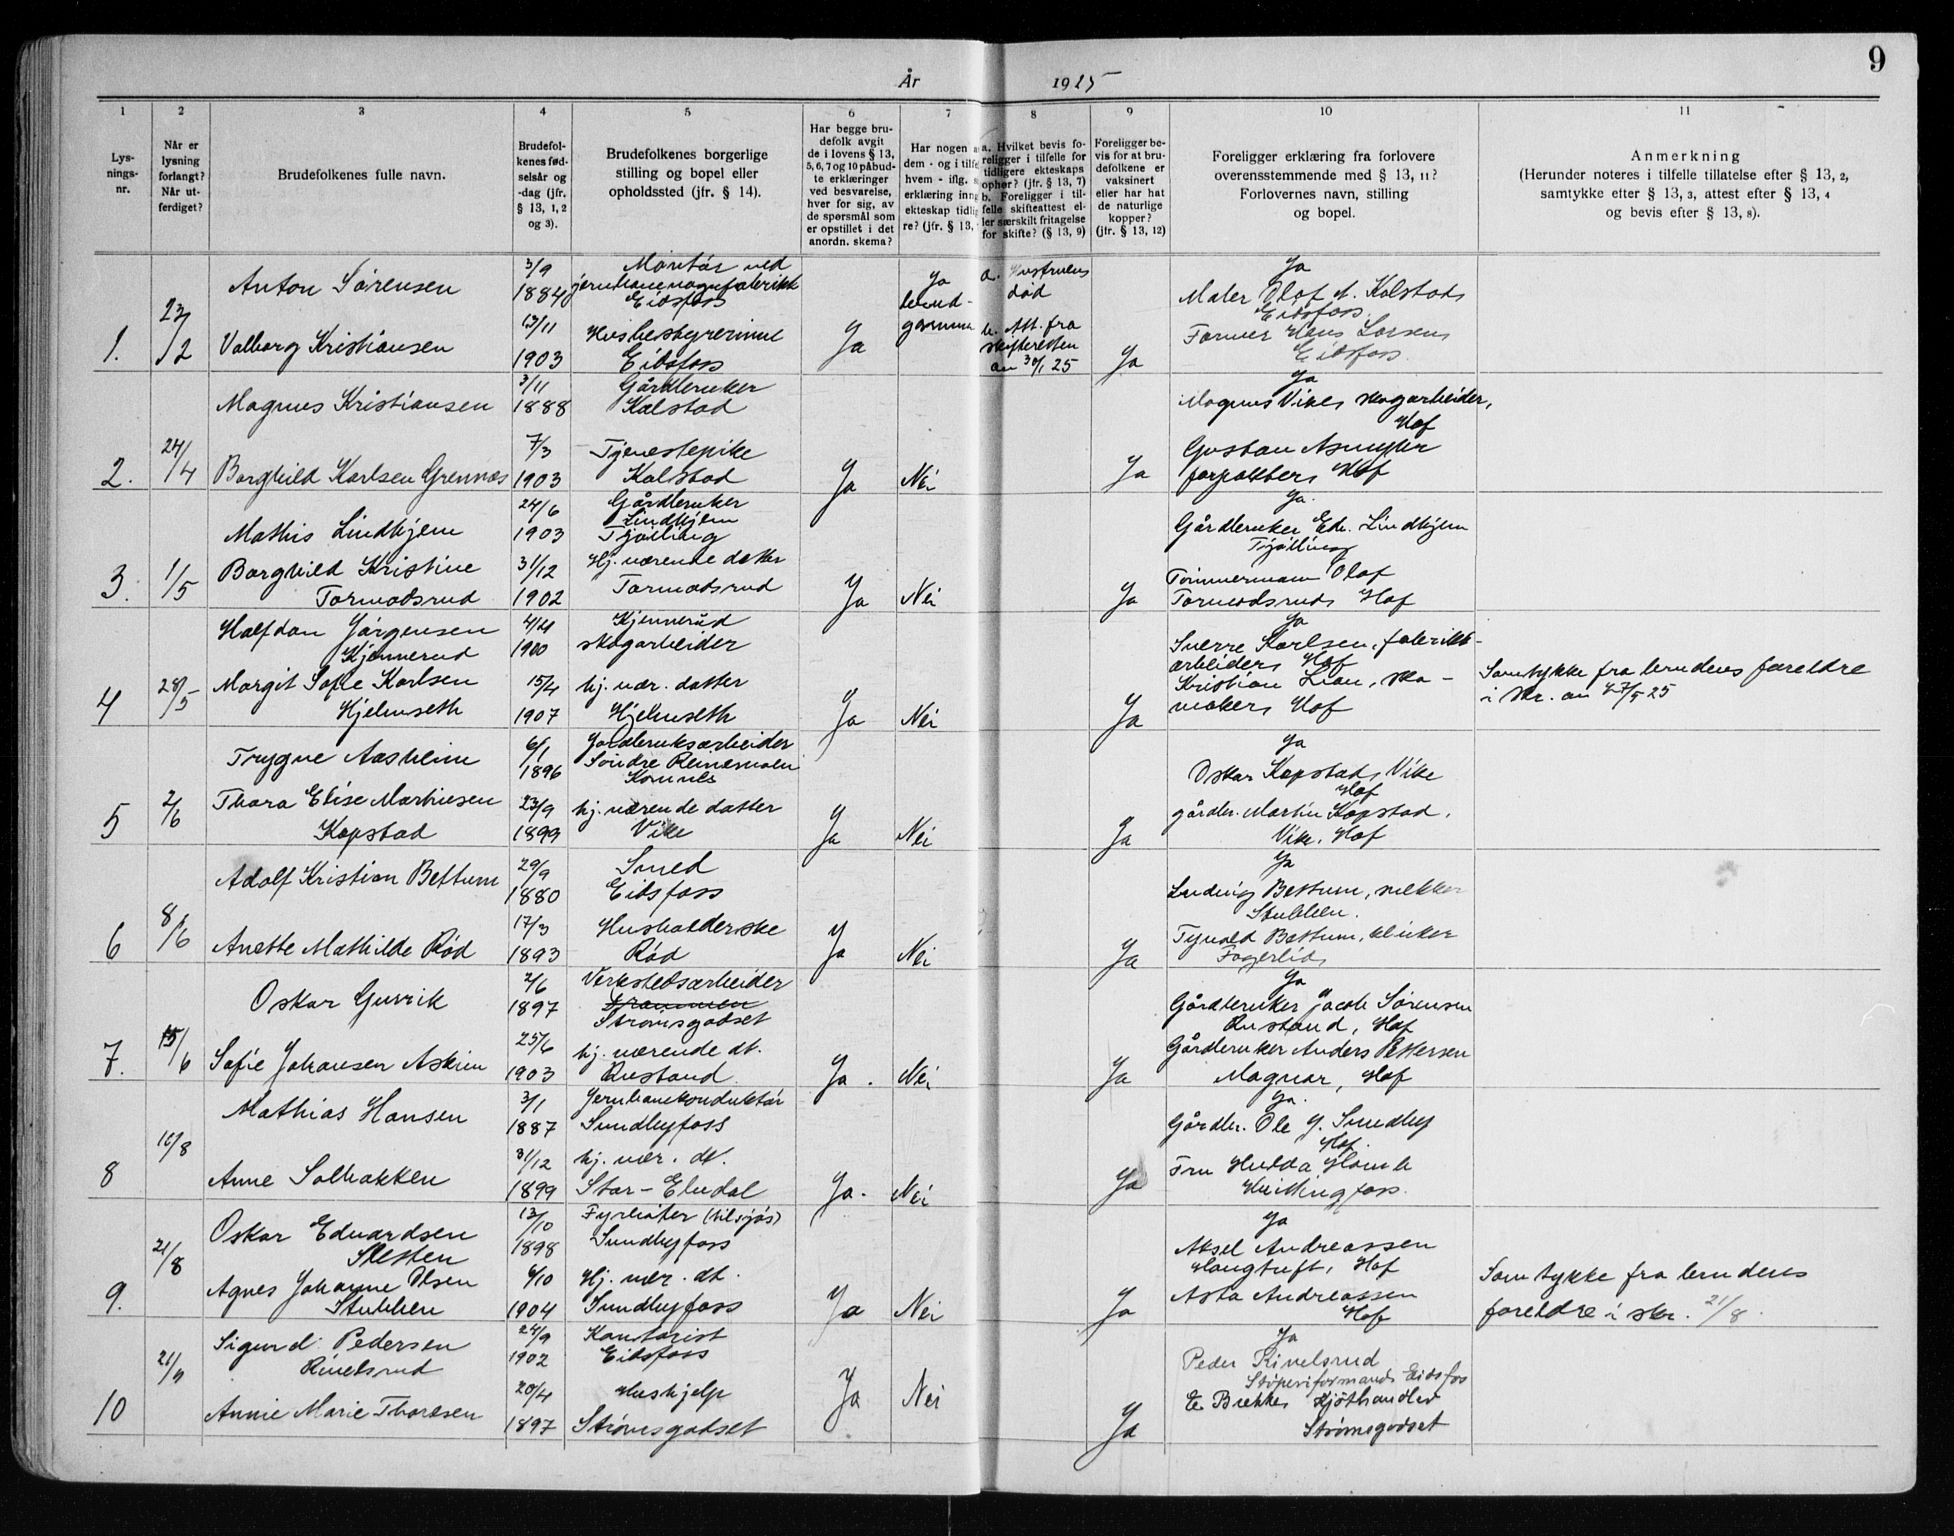 9
År 1925
1 2 3 4 5 6 7 8 9 10 11
Lysningsnr.
Når er lysning forlangt? Når utferdiget?
Brudefolkenes fulle navn.
Brudefolkenes fødselsår og -dag (jfr. § 13, 1, 2 og 3).
Brudefolkenes borgerlige stilling og bopel eller opholdssted (jfr. § 14).
Har begge brudefolk avgit de i lovens § 13, 5, 6, 7 og 10 påbudte erklæringer ved besvarelse, hver for sig, av de spørsmål som er opstillet i det anordn. skema?
Har nogen a
dem - og i tilfe
hvem - iflg. s
erklæring inng
ekteskap tidlig
re? (jfr. § 13,
a. Hvilket bevis foreligger i tilfelle for tidligere ekteskaps ophør? (jfr. § 13, 7)
b. Foreligger i tilfelle skifteattest eller særskilt fritagelse for skifte? (§ 13, 9)
Foreligger bevis for at brudefolkene er vaksinert eller har hat de naturlige kopper? (jfr. § 13, 12)
Foreligger erklæring fra forlovere overensstemmende med § 13, 11? Forlovernes navn, stilling og bopel.
Anmerkning
(Herunder noteres i tilfelle tillatelse efter § 13, 2, samtykke efter § 13, 3, attest efter § 13, 4 og bevis efter § 13, 8).
1. 23/2
Anton Sørensen 3/9 1884 Montør ved jernbanevognfabrikk Eidsfoss
Valborg Kristiansen 13/11 1903 Husbestyrerinne Eidsfoss
Ja
Ja brudgommen
a. Hustruens død
b. Att. fra skifteretten av 30/1 25
Ja
Ja
Maler Olaf A. Kolstad, Eidsfoss.
Former Hans Larsen, Eidsfoss.
2. 24/4
Magnus Kristiansen 3/11 1888 Gårdbruker Kolstad
Borghild Karlsen Grennes 7/3 1903 Tjenestepike Kolstad
Ja Nei Ja
Ja
Magnus Vike, skogarbeider, Hof
Gustav Asmyhr forpakter, Hof
3. 1/5
Mathis Lindhjem 24/6 1903 Gårdbruker Lindhjem Tjølling
Borghild Kristine Tormodsrud 31/12 1902 Hj. værende datter Tormodsrud
Ja Nei Ja
Ja.
Gårdbruker Edv. Lindhjem Tjølling
Tømmermann Olaf Tormodsrud, Hof
4 28/5
Halfdan Jørgensen Kjennerud 4/4 1900 Kjennerud skogarbeider
Margit Sofie Karlsen Hjelmseth 15/4 1907 hj. vær. datter Hjelmseth
Ja Nei Ja
Ja
Sverre Karlsen, fabrikkarbeider, Hof
Kristian Lian, skomaker, Hof
Samtykke fra brudens foreldre
i skr. av 27/5 25
5 2/6
Trygve Aasheim 6/1 1896 Jordbruksarbeider Søndre Reinemoen Komnes
Thora Elise Mathiesen Kopstad 23/9 1899 hj. værende datter Vike
Ja Nei Ja
Ja
Oskar Kopstad, Vike Hof
gårdbr. Martin Kopstad, Vike, Hof
6 8/6
Adolf Kristian Bettum 29/9 1880 Smed Eidsfoss
Anette Mathilde Rød 17/3 1893 Husholderske Rød
Ja Nei Ja
Ja
Ludvig Bettum, snekker Stubben.
Tyvald Bettum, Fagerlid,
7. 15/6
Oskar Gurrik 2/6 1897 Verkstedsarbeider Drammen Strømsgodset
Sofie Johansen Askim 25/6 1903 hj. værende dt. Rustand
Ja. Nei Ja
Ja
Gårdbruker Jacob Sørensen Rustand, Hof
Gårdbruker Anders Pettersen Magnar, Hof
8 11/8
Mathias Hansen 3/1 1887 Jernbanekonduktør Sundbyfoss
Anne Solbakken 31/12 1899 hj. vær. dt. Stor-Elvdal
Ja. Nei Ja
Ja.
Gårdbr. Ole G. Sundby Hof.
Fru Hulda Homb Hvittingfoss.
9. 21/8
Oskar Edvardsen Slesten 13/10 1898 Fyrbøter (tilsjøs) Sundbyfoss
Agnes Johanne Olsen Stubben 6/10 1904 Hj. vær. dt. Sundbyfoss
Ja Nei Ja
Ja
Aksel Andreassen Haugtuft, Hof
Asta Andreassen Hof
Samtykke fra brudens
foreldre i skr. 21/8.
10 21/9
Sigurd Pedersen Rivelsrud 24/9 1902 Kontorist Eidsfoss
Annie Marie Thoresen 20/4 1897 Hushjelp Strømsgodset
Ja Nei Ja
Ja
Peder Rivelsrud Støperiformand, Eidsfos
E. Brekke, Kjøthandler Strømsgodset